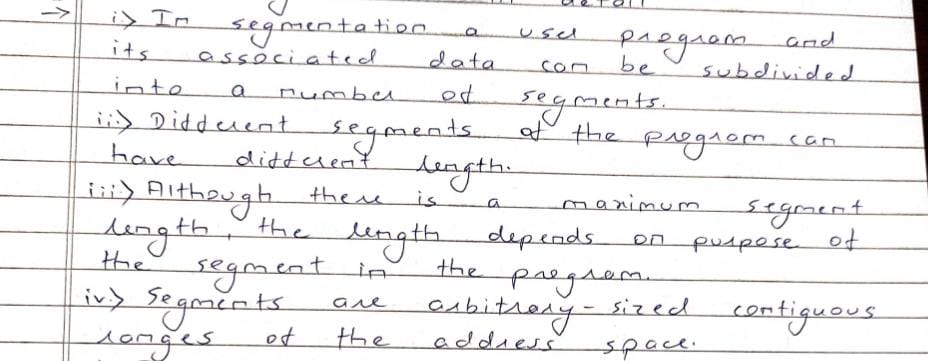 → i:> In segmentation a user program and
its associated data can be subdivided
into a number of segments.
ii:> Different segments of the program can
have different length.
iii:> Although there is a maximum segment
length, the length depends on purpose of
the segment in the program.
iv:> Segments are arbitrary-sized contiguous
ranges of the address space.